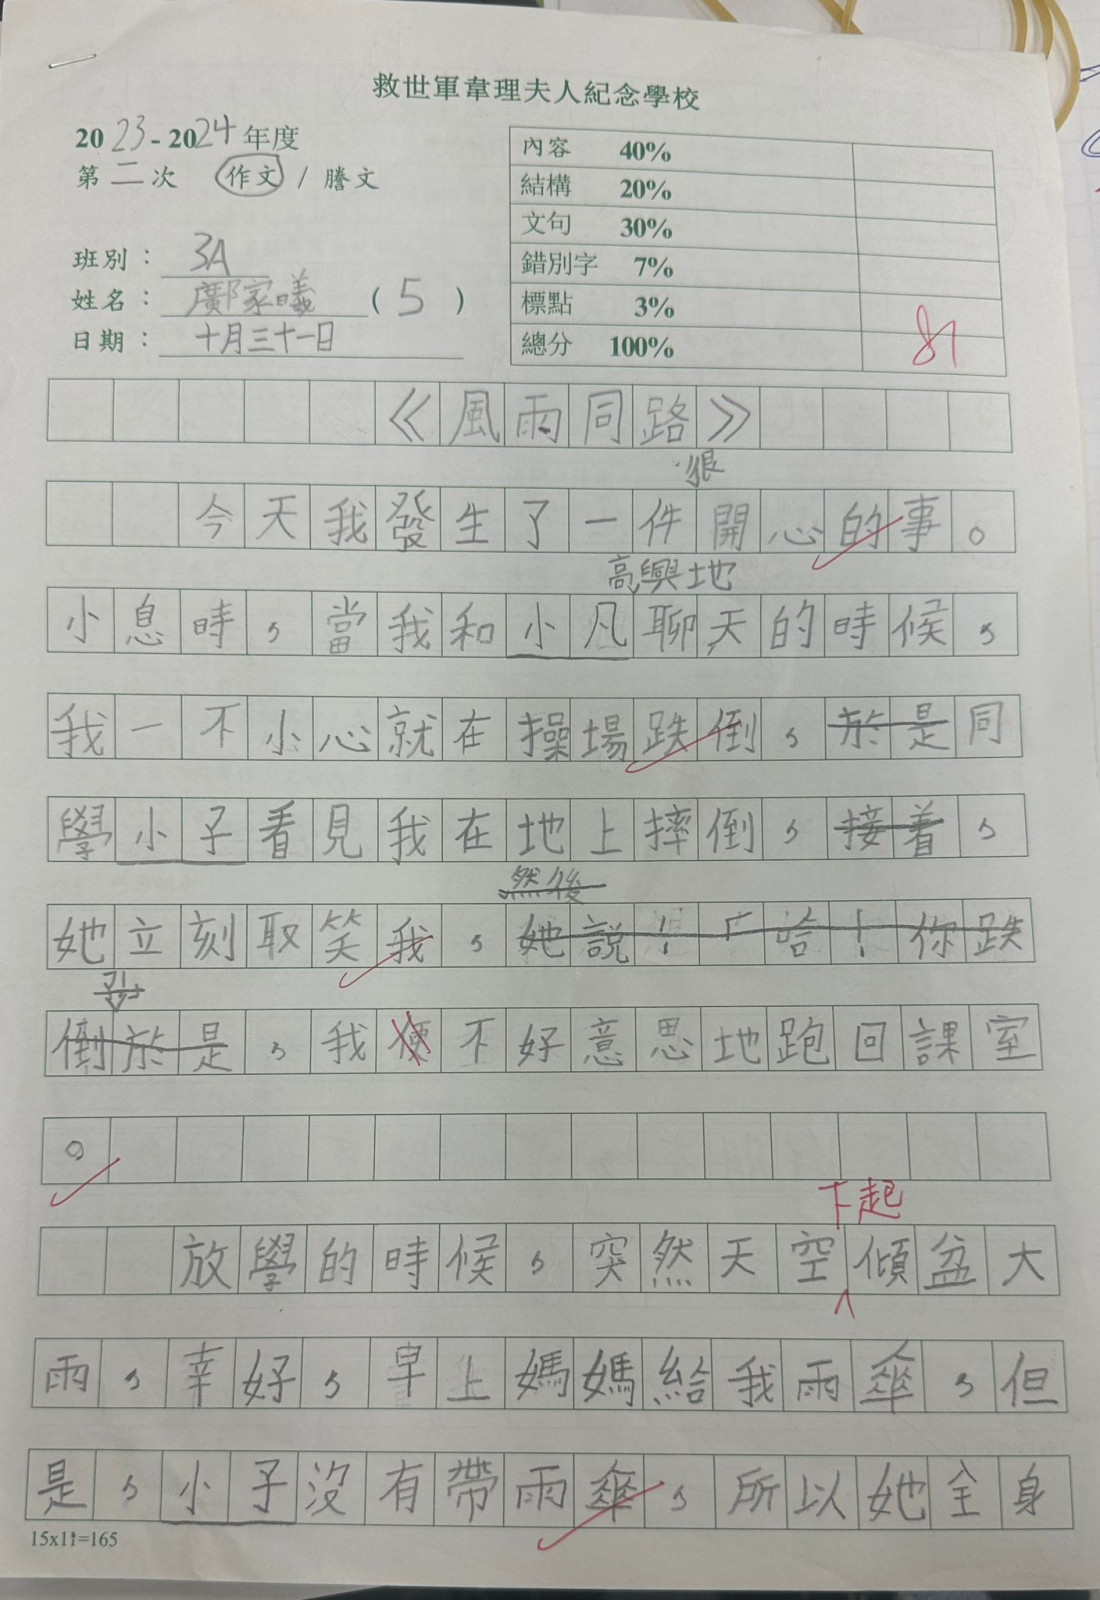 救世軍韋理夫人紀念學校
2023-2024年度
第二次 作文 / 謄文
班別：3A
姓名：鄺家曦 (5)
日期：十月三十一日
內容 40%
結構 20%
文句 30%
錯別字 7%
標點 3%
總分 100% 81
《風雨同路》
很
今天我發生了一件開心的事。
高興地
小息時，當我和小凡聊天的時候，
我一不小心就在操場跌倒，於是同
學小子看見我在地上摔倒，接着，
她立刻取笑我，她說！「哈！你跌
然後
倒於是，我便不好意思地跑回課室
。
下起
放學的時候，突然天空傾盆大
雨，幸好，早上媽媽給我雨傘，但
是，小子沒有帶雨傘，所以她全身
15x11=165